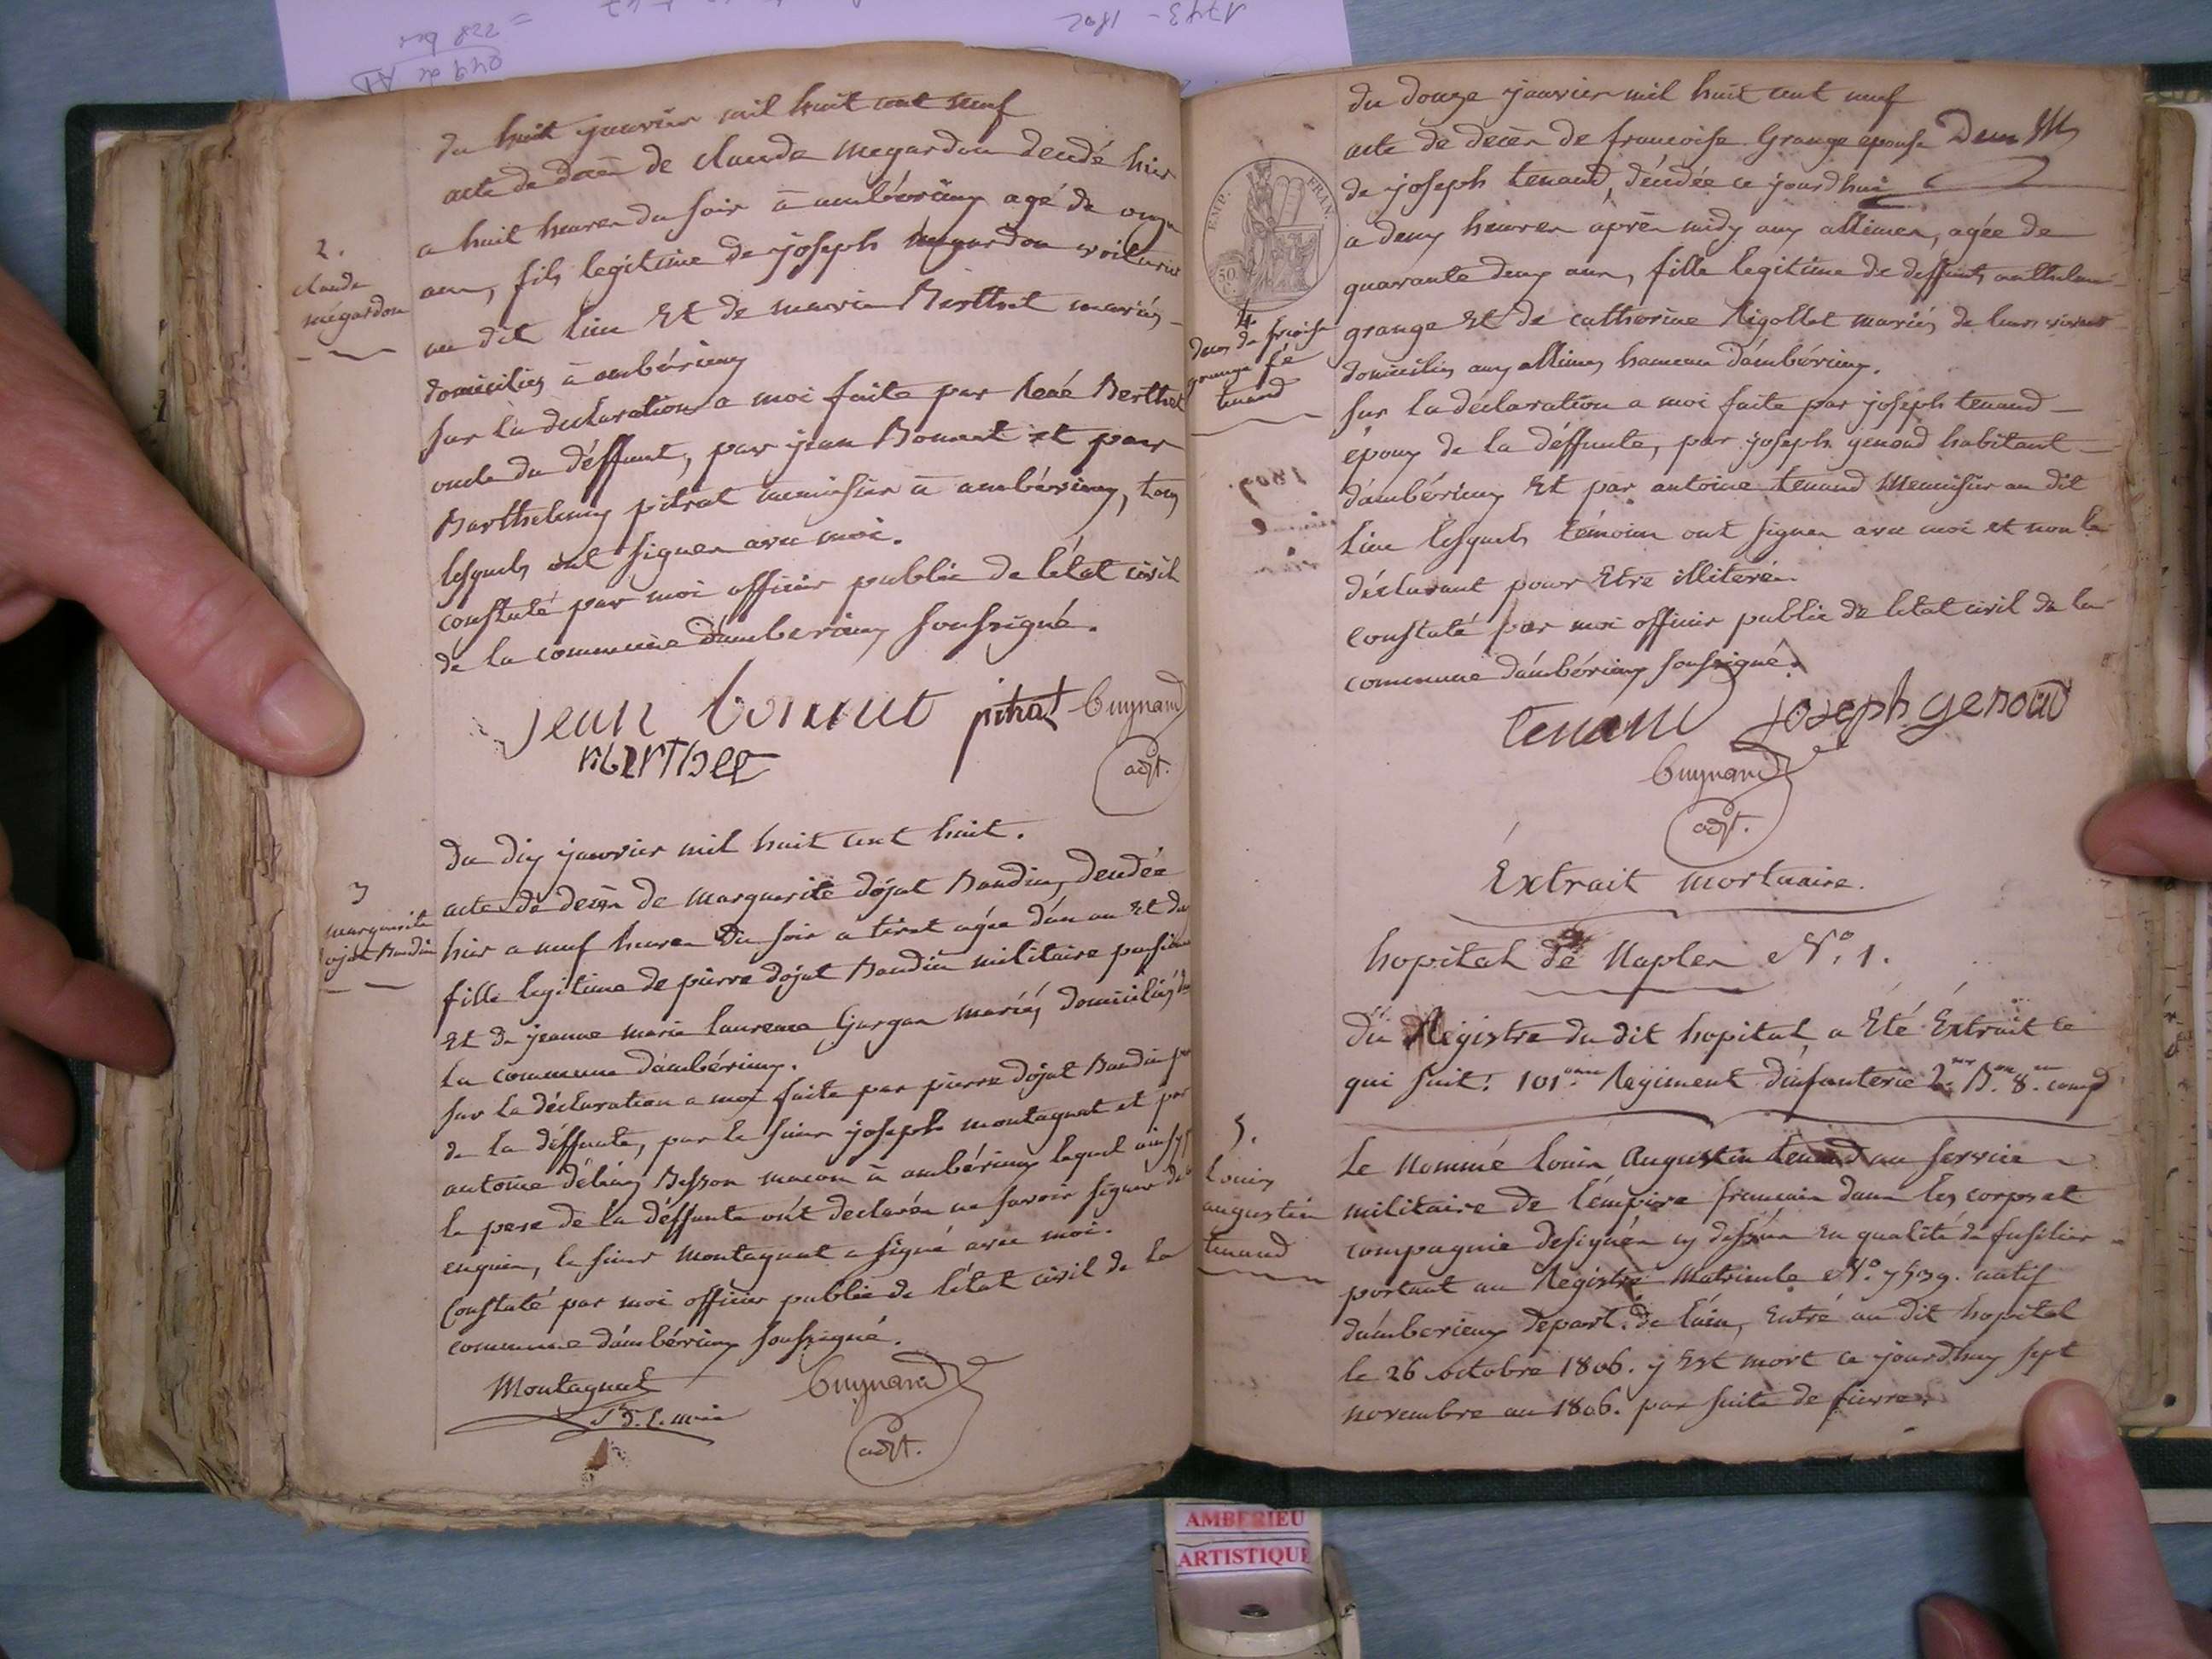 1743 - 1802
= 228 bis
du huit janvier mil huit cent neuf
acte de decès de claude megardon décédé hier
a huit heures du soir a ambérieux agé de onze
ans, fils legitime de joseph megardon voiturier
au dit lieu Et de marie Berthet mariés
domiciliés a ambérieux
sur la declaration a moi faite par René Berthet
oncle du déffunt, par jean Bonnet et par
Barthelemy pitrat menuisier a ambérieux, tous
lesquels ont signer avec moi.
constaté par moi officier public de létat civil
de la commune dámberieux soussigné.
2.
claude
mégardon
jean bonnet pitrat Guynand
rberthet
adjt.
du dix janvier mil huit cent huit.
acte de decès de marguerite dojat Baudin, décédée
hier a neuf heures du soir a tiret agée dún an Et
fille legitime de pierre dojat Baudin militaire
Et de jeanne marie laurence Gargan mariés domiciliés
la commune dámbérieux.
sur la déclaration a moi faite par pierre dojat Baudin
de la déffunte, par le sieur joseph montagnat et par
antoine Besson macon a ambérieux lequel ainsy
le pere de la déffunte ont declarés ne savoir signer de
enquis, le sieur montagnat a signé avec moi.
constaté par moi officier public de létat civil de la
commune dámbérieux soussigné.
3
marguerite
dojat Baudin
Montagnat Guynand
adjt.
EMP. FRAN.
50
du douze janvier mil huit cent neuf
acte de decès de francoise Grange epouse
de joseph tenand, décédée ce jourdhui
a deux heures après midy aux allimes, agée de
quarante deux ans, fille legitime de deffunts anthelme
grange Et de catherine Rigollet mariés de leurs vivant
domiciliés aux allimes hameau dámbérieux.
sur la déclaration a moi faite par joseph tenand
époux de la déffunte, par joseph genoud habitant
dámbérieux Et par antoine tenand Menuisier au dit
lieu lesquels témoins ont signer avec moi et non le
déclarant pour Etre illiteré.
constaté par moi officier public de létat civil de la
commune dámbérieux soussigné.
4.
deces de fcoise
grange fe
tenand
tenand joseph genoud
Guynand
adjt.
Extrait mortuaire.
hopital de Naples No. 1.
du Régistre du dit hopital, a Eté Extrait ce
qui suit: 101eme Regiment dinfanterie 2me Bon 8me comp
5.
Louis
augustin
tenand
Le Nommé Louis Augustin tenand au service
militaire de lémpire francais dans les corps et
compagnie designés cy dessus en qualité de fusilier
portant au Régistre Matricule No. 7539. natif
dámberieux depart. de láin, Entré au dit hopital
le 26 octobre 1806. y Est mort ce jourdhuy sept
novembre an 1806. par suite de fievre.
AMBERIEU
ARTISTIQUE